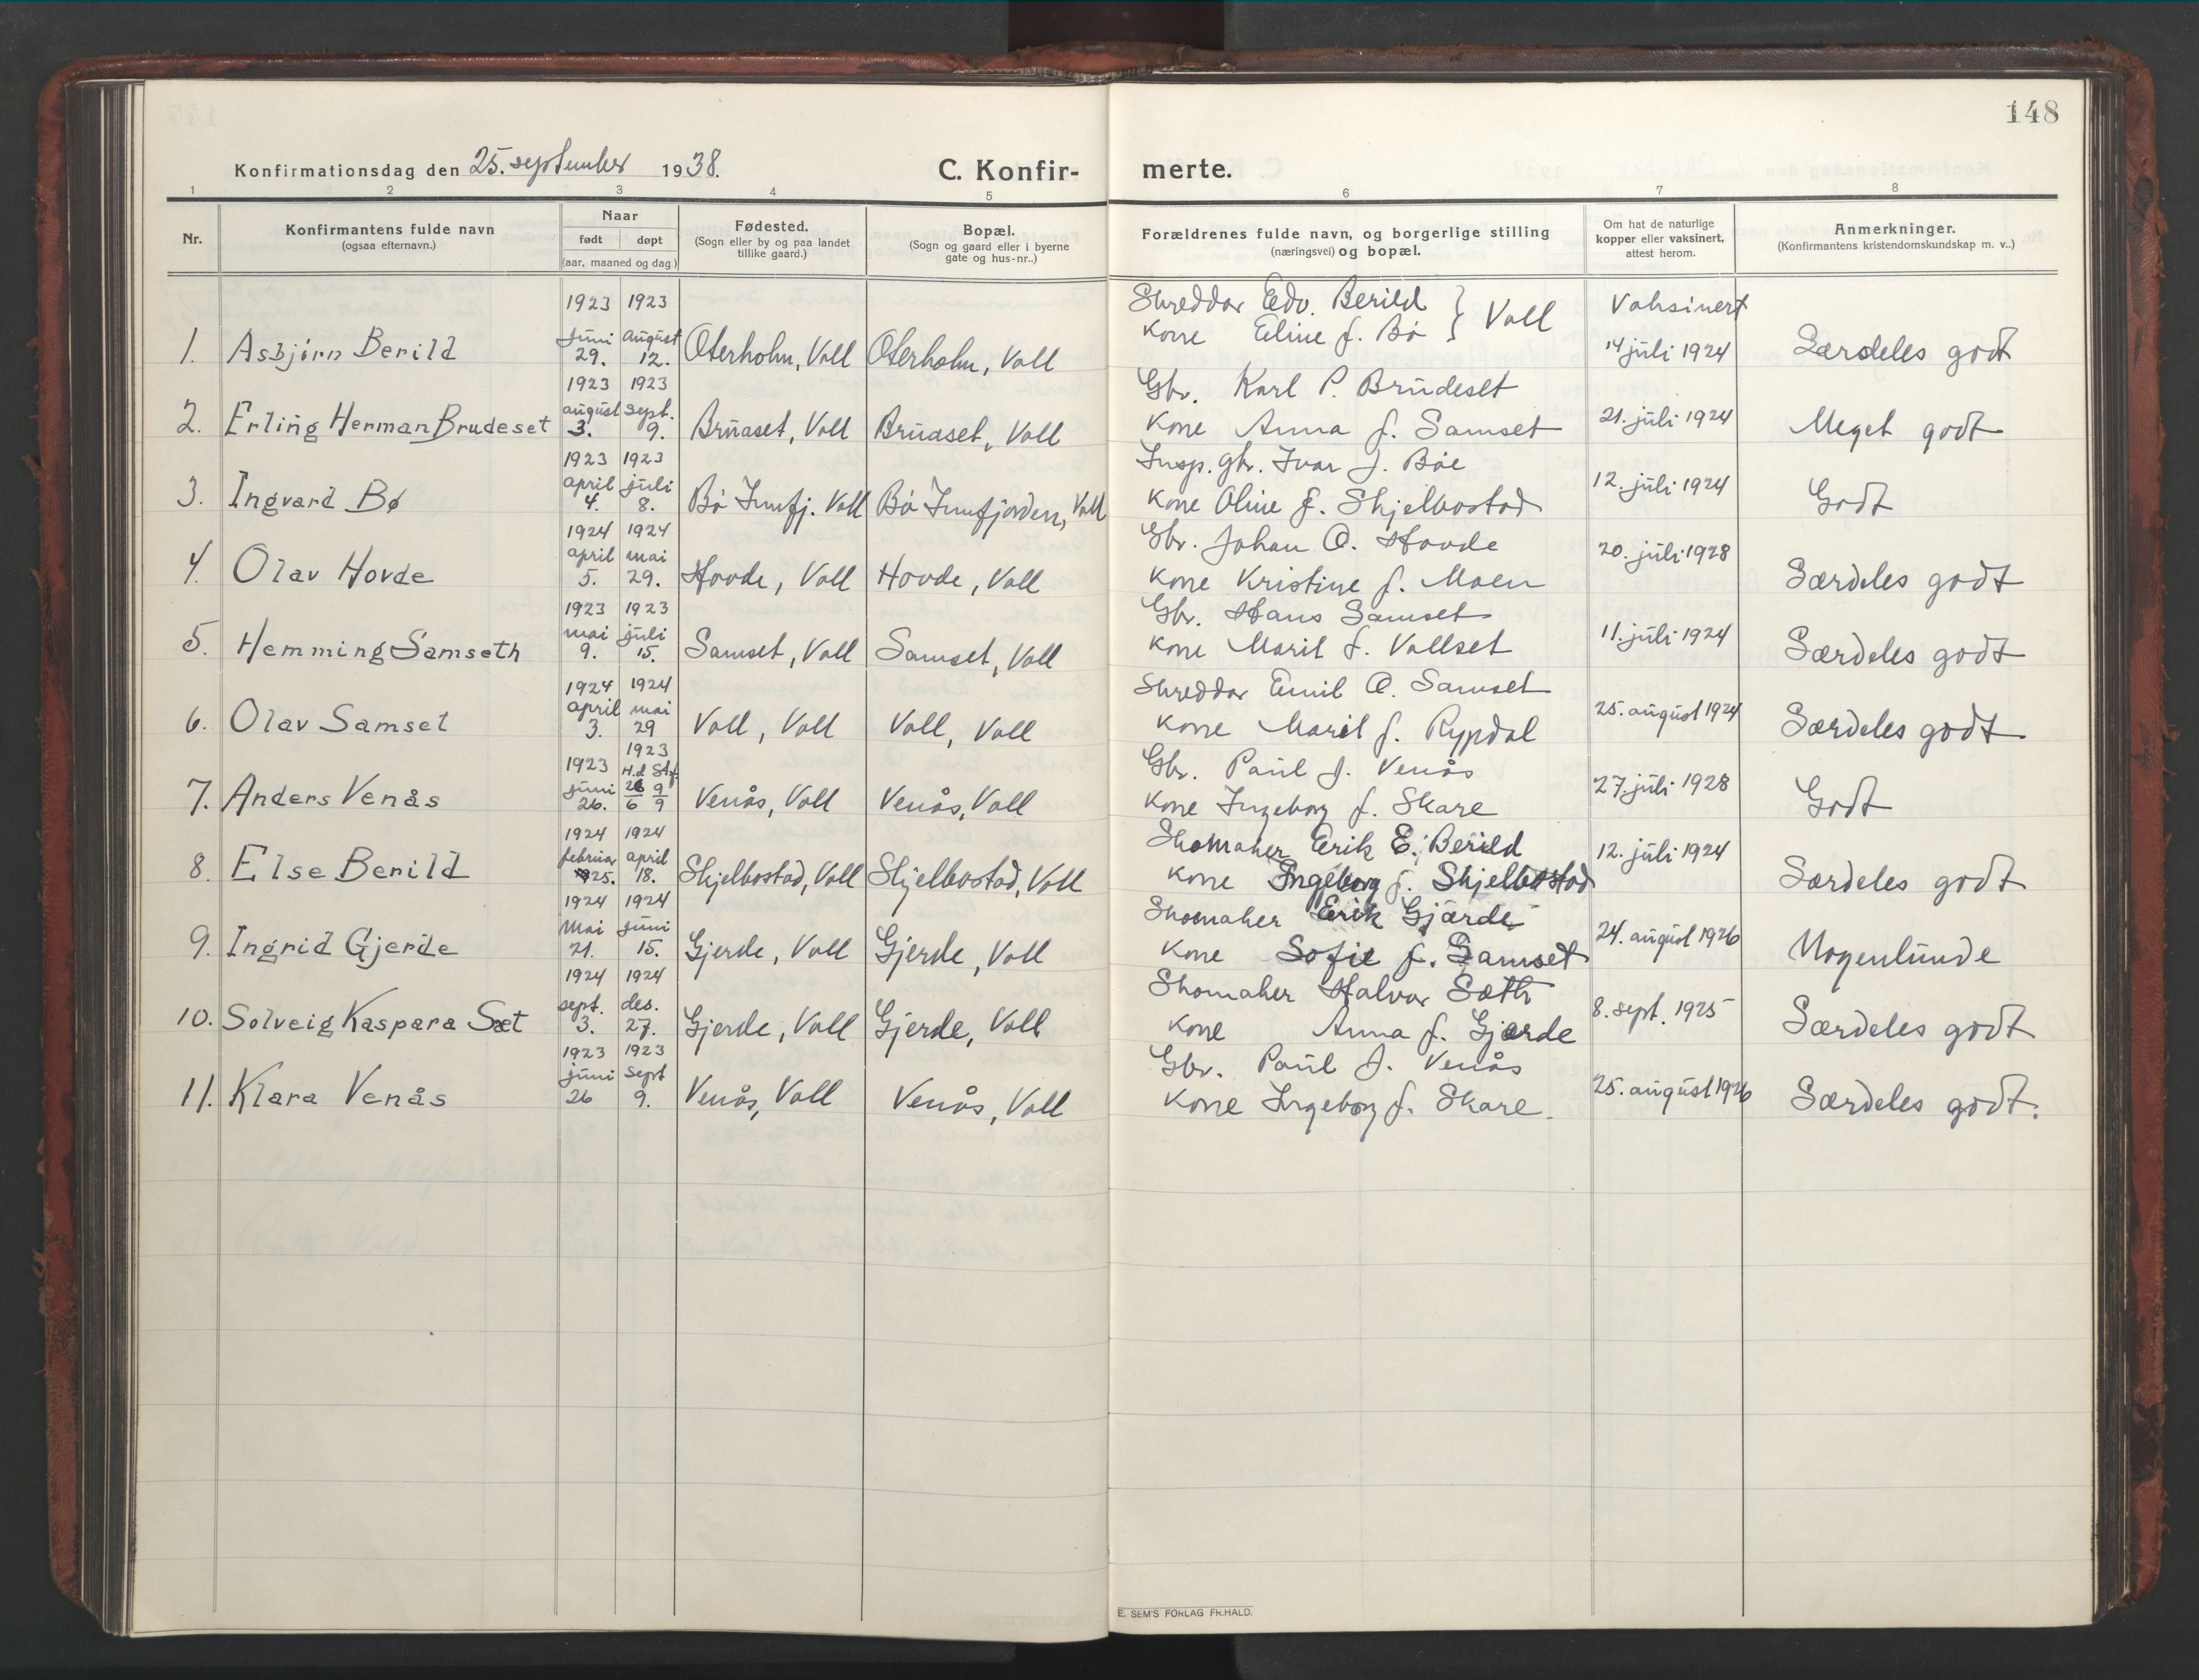 148
Konfirmationsdag den 25. september 1938.
C. Konfir- merte.
1 2 3 4 5 6 7 8
Nr.
Konfirmantens fulde navn
(ogsaa efternavn.)
Naar
født døpt
(aar, maaned og dag.)
Fødested.
(Sogn eller by og paa landet
tillike gaard.)
Bopæl.
(Sogn og gaard eller i byerne
gate og hus-nr..)
Forældrenes fulde navn, og borgerlige stilling
(næringsvei) og bopæl.
Om hat de naturlige
kopper eller vaksinert,
attest herom.
Anmerkninger.
(Konfirmantens kristendomskundskap m. v..)
1923 1923 Skreddar Edv. Berild } Voll Vaksinert
juni august kone Eline f. Bø
1. Asbjørn Berild 29. 12. Oterholm, Voll Oterholm, Voll 14 juli 1924 Særdeles godt
1923 1923 Gbr. Karl P. Brudeset
august sept. 21. juli 1924
2. Erling Herman Brudeset 3. 9. Bruaset, Voll Bruaset, Voll kone Anna f. Samset Meget godt
1923 1923 Insp. gbr. Ivar J. Bøe
april juli 12. juli 1924
3. Ingvard Bø 4. 8. Bø Innfj. Voll Bø Innfjorden, Voll kone Oline f. Skjelbostad Godt
1924 1924 Gbr. Johan O. Hovde
april mai 20. juli 1928
4. Olav Hovde 5. 29. Hovde, Voll Hovde, Voll kone Kristine f. Moen Særdeles godt
1923 1923 Gbr. Hans Samset
mai juli 11. juli 1924
5. Hemming Samseth 9. 15. Samset, Voll Samset, Voll kone Marit f. Vollset Særdeles godt
1924 1924 Skreddar Emil O. Samset
april mai 25. august 1924
6. Olav Samset 3. 29 Voll, Voll Voll, Voll kone Marit f. Rypdal Særdeles godt
1923 1923 Gbr. Paul J. Venås
juni H.d Stf. 27. juli 1928
7. Anders Venås 26. 26/6 9/9 Venås, Voll Venås, Voll kone Ingeborg f. Skare Godt
1924 1924 Skomaker Erik E. Berild
februar april 12. juli 1924
8. Else Berild 25. 18. Skjelbostad, Voll Skjelbostad, Voll kone Ingeborg f. Skjelbostad Særdeles godt
1924 1924 Skomaker Erik Gjærde
mai juni 24. august 1926
9. Ingrid Gjerde 21. 15. Gjerde, Voll Gjerde, Voll kone Sofie f. Samset Mogenlunde
1924 1924 Skomaker Halvor Sæth
sept. des. 8. sept. 1925
10. Solveig Kaspara Sæt 3. 27. Gjerde, Voll Gjerde, Voll kone Anna f. Gjærde Særdeles godt
1923 1923 Gbr. Paul J. Venås
juni sept 25. august 1926
11. Klara Venås 26 9. Venås, Voll Venås, Voll kone Ingeborg f. Skare. Særdeles godt.
E. SEM'S FORLAG FR.HALD.